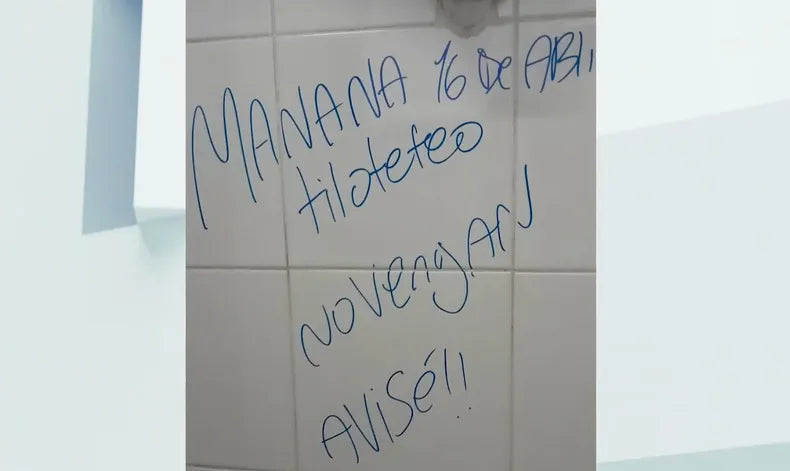 MANANA 16 De ABRI
tiloteteo
NO VengAN
AVISÉ!!